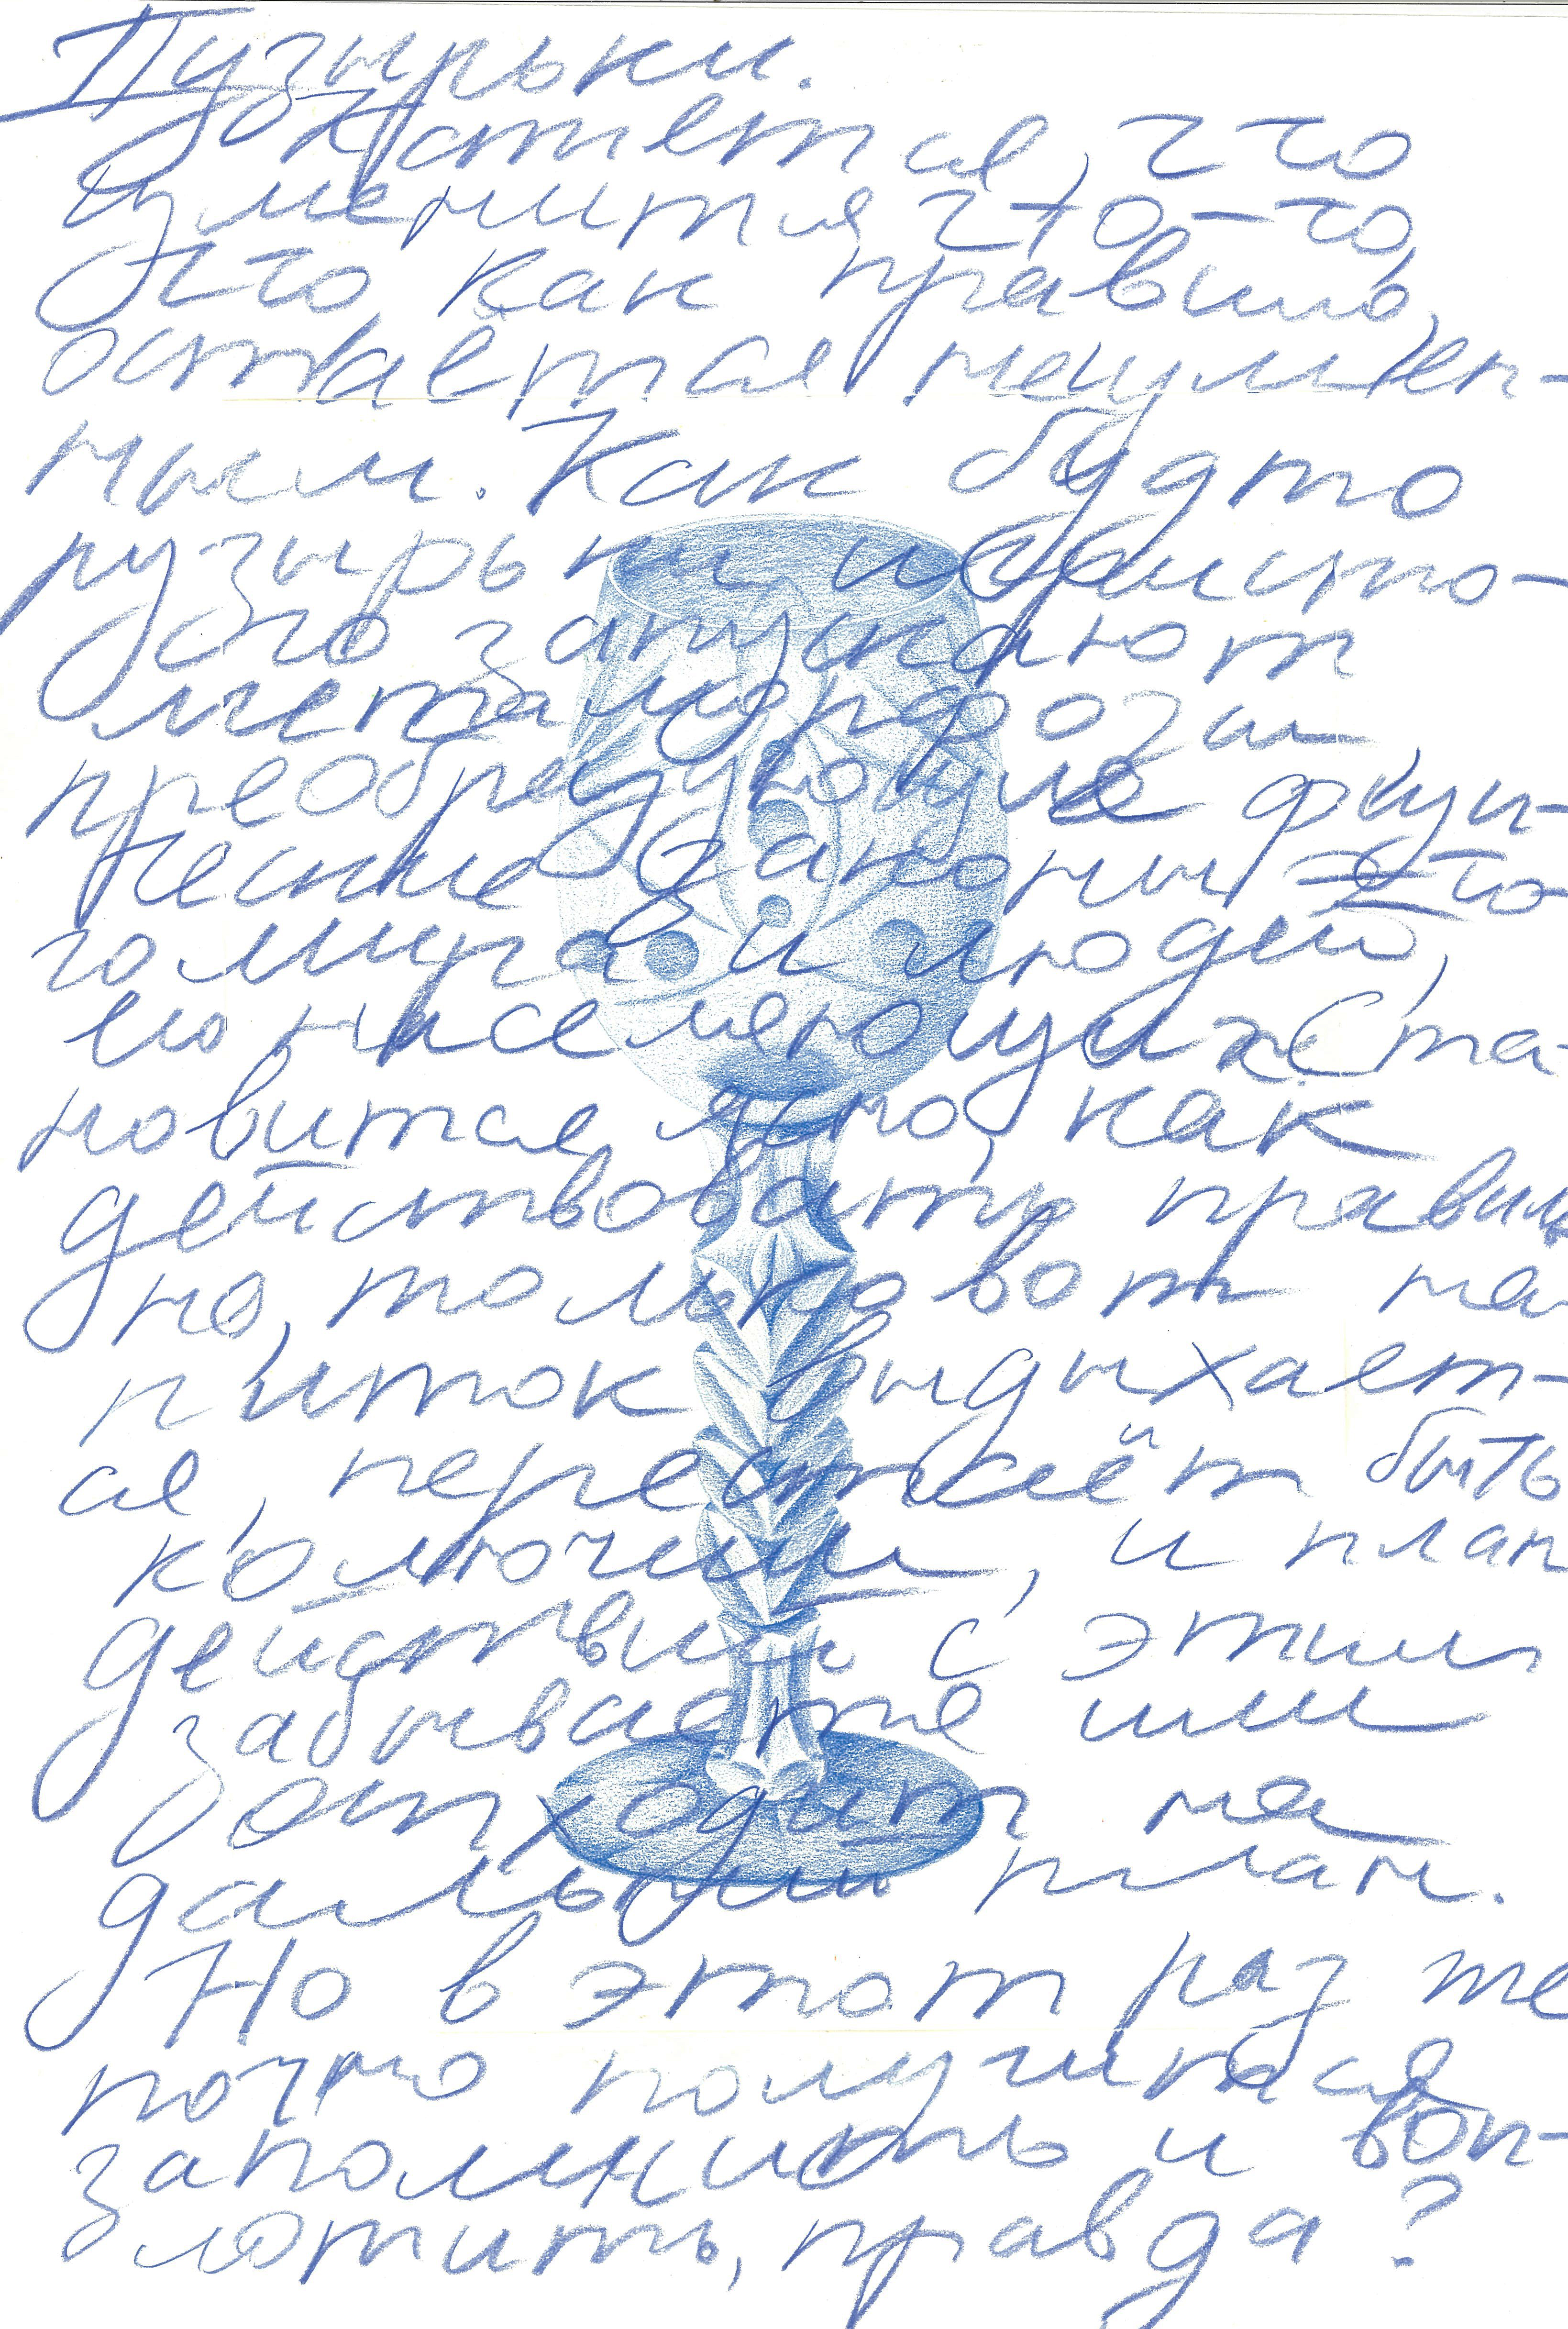 Пузырьки.
Кажется, что
изменится что-то,
что как правило,
остается неизмен-
ным. Как будто
пузырьки игристо-
го запускают
метаморфозы,
преобразующие физи-
ческие законы это-
го мира и людей,
его населяющих. Ста-
новится ясно, как
действовать правиль-
но, только вот на-
питок выдыхает-
ся, перестаёт быть
колючим, и план
действий с этим
забывается или
отходит на
дальний план.
Но в этот раз же
точно получится
запомнить и воп-
лотить, правда?